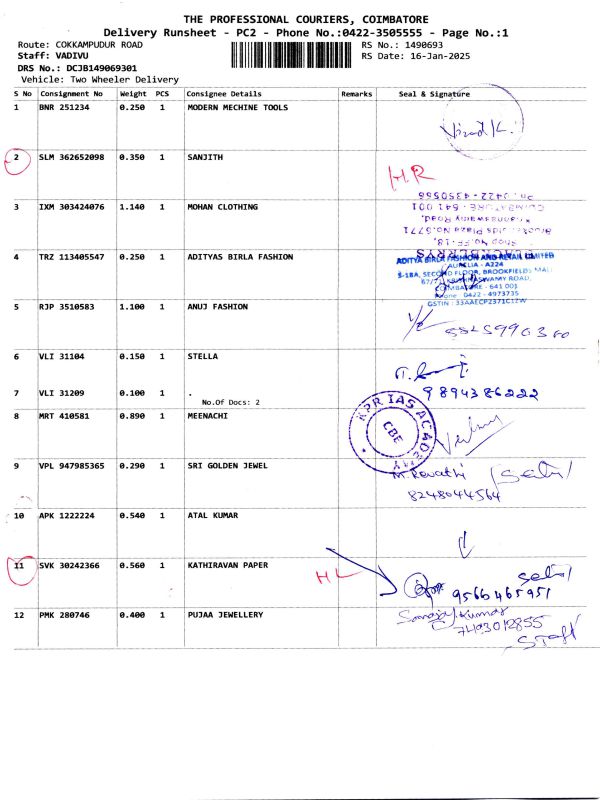 THE PROFESSIONAL COURIERS, COIMBATORE
Delivery Runsheet - PC2 - Phone No.:0422-3505555 - Page No.:1
Route: COKKAMPUDUR ROAD
RS No.: 1490693
Staff: VADIVU
RS Date: 16-Jan-2025
DRS No.: DCJB149069301
Vehicle: Two Wheeler Delivery
S No Consignment No Weight PCS Consignee Details Remarks Seal & Signature
1 BNR 251234 0.250 1 MODERN MECHINE TOOLS
2 SLM 362652098 0.350 1 SANJITH
HR
Ph: 0422-4350566
COIMBATORE - 641 001
3 IXM 303424076 1.140 1 MOHAN CLOTHING
Shop No.FF-18,
4 TRZ 113405547 0.250 1 ADITYAS BIRLA FASHION
ADITYA BIRLA FASHION AND RETAIL LIMITED
AURELIA - A224
S-18A, SECOND FLOOR, BROOKFIELDS MALL
67/71, KRISHNASWAMY ROAD,
COIMBATORE - 641 001
Phone : 0422 - 4973735
GSTIN : 33AAECP2371C1ZW
5 RJP 3510583 1.100 1 ANUJ FASHION
6 VLI 31104 0.150 1 STELLA
7 VLI 31209 0.100 1 .
No.Of Docs: 2
9894386222
8 MRT 410581 0.890 1 MEENACHI
KPR IAS ACADEMY
CBE
9 VPL 947985365 0.290 1 SRI GOLDEN JEWEL
M. Revathi
8248044564
10 APK 1222224 0.540 1 ATAL KUMAR
11 SVK 30242366 0.560 1 KATHIRAVAN PAPER
HL
9566465951
12 PMK 280746 0.400 1 PUJAA JEWELLERY
Kumar
7493012855
STAFF